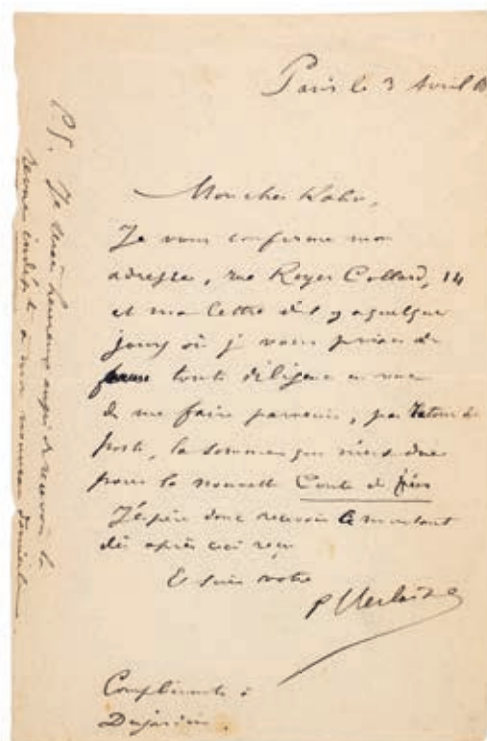 Paris le 3 Avril
Mon cher Kahn,
Je vous confirme mon
adresse, rue Royer Collard, 14
et ma lettre d'il y a quelques
jours où je vous priais de
faire toute diligence en vue
de me faire parvenir, par retour de
poste, la somme qui m'est due
pour la nouvelle Conte de fées
J'espère donc recevoir le montant
dès après ceci reçu
Et suis votre
P Verlaine
Compliments à
Dujardin.
P.S. Je serai heureux aussi de recevoir la
Revue indépte à mon nouveau domicile.